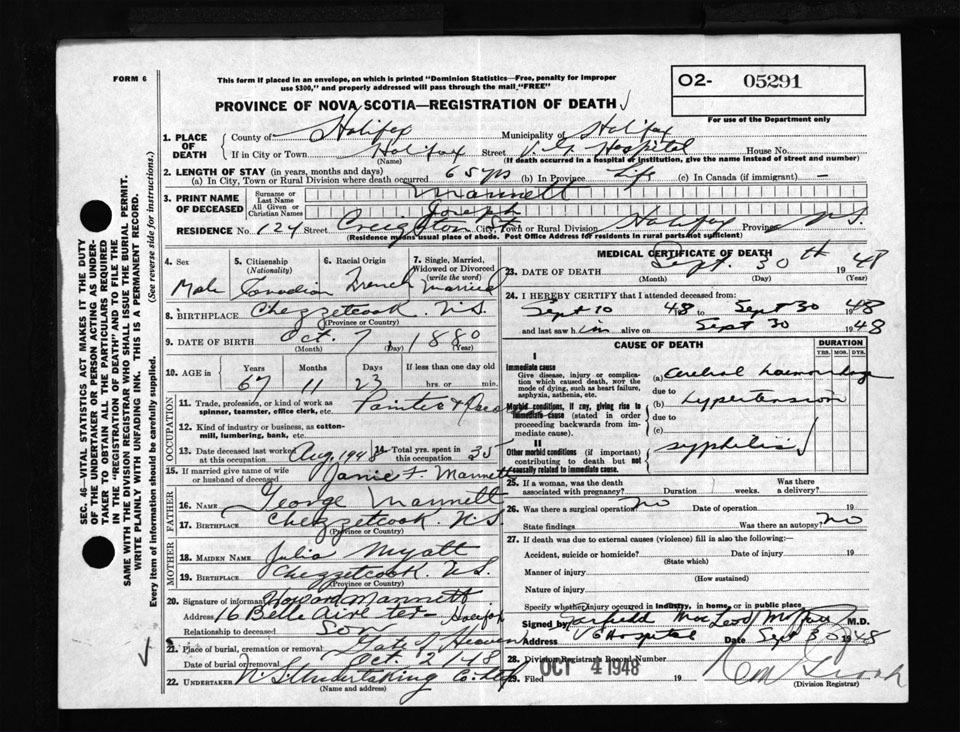 FORM 6
This form if placed in an envelope, on which is printed "Dominion Statistics—Free, penalty for improper
use $300," and properly addressed will pass through the mail "FREE"
O2- 05291
For use of the Department only
PROVINCE OF NOVA SCOTIA—REGISTRATION OF DEATH
1. PLACE OF DEATH
County of Halifax Municipality of Halifax
If in City or Town Halifax Street V. G. Hospital House No.
(Name) (If death occurred in a hospital or institution, give the name instead of street and number)
2. LENGTH OF STAY (in years, months and days)
(a) In City, Town or Rural Division where death occurred 65 yrs (b) In Province Life (c) In Canada (if immigrant) —
3. PRINT NAME OF DECEASED
Surname or Last Name Mannett
All Given or Christian Names Joseph
RESIDENCE No. 124 Street Creighton St City, Town or Rural Division Halifax Province N.S.
(Residence means usual place of abode. Post Office Address for residents in rural parts not sufficient)
4. Sex
Male
5. Citizenship
(Nationality)
Canadian
6. Racial Origin
French
7. Single, Married,
Widowed or Divorced
(write the word)
Married
8. BIRTHPLACE Chezzetcook. N.S.
(Province or Country)
9. DATE OF BIRTH Oct. 7 1880
(Month) (Day) (Year)
10. AGE in
Years Months Days If less than one day old
67 11 23 hrs. or min.
OCCUPATION
11. Trade, profession, or kind of work as
spinner, teamster, office clerk, etc. Painter &
12. Kind of industry or business, as cotton-
mill, lumbering, bank, etc.
13. Date deceased last worked at this occupation Aug. 1948 Total yrs. spent in this occupation 35
15. If married give name of wife
or husband of deceased Janie F. Mannett
FATHER
16. NAME George Mannett
17. BIRTHPLACE Chezzetcook. N.S.
(Province or Country)
MOTHER
18. MAIDEN NAME Julia Myatt
19. BIRTHPLACE Chezzetcook. N.S.
(Province or Country)
20. Signature of informant Howard Mannett
Address 16 Belle Aire ter. Halifax
Relationship to deceased Son
21. Place of burial, cremation or removal Gate of Heaven
Date of burial or removal Oct. 2 1948
22. UNDERTAKER N.S. Undertaking Co. Ltd
(Name and address)
MEDICAL CERTIFICATE OF DEATH
23. DATE OF DEATH Sept. 30th 1948
(Month) (Day) (Year)
24. I HEREBY CERTIFY that I attended deceased from:
Sept 10 1948 to Sept 30 1948
and last saw him alive on Sept 30 1948
CAUSE OF DEATH
DURATION
YRS. MOS. DYS.
I
Immediate cause
Give disease, injury or compli-
cation which caused death, NOT the
mode of dying, such as heart failure,
asphyxia, asthenia, etc.
(a) Cerebral haemorrhage
due to
Morbid conditions, if any, giving rise to
immediate cause (stated in order
proceeding backwards from im-
mediate cause).
(b) hypertension
due to
(c)
II
Other morbid conditions (if important)
contributing to death but not
causally related to immediate cause.
syphilis
25. If a woman, was the death
associated with pregnancy? Duration weeks. Was there
a delivery?
26. Was there a surgical operation? No Date of operation 19
State findings Was there an autopsy? No
27. If death was due to external causes (violence) fill in also the following:—
Accident, suicide or homicide? Date of injury 19
(State which)
Manner of injury
(How sustained)
Nature of injury
Specify whether injury occurred in industry, in home, or in public place
Signed by Garfield MacLeod M.D.
Address V G Hospital Date Sept 30 1948
28. Division Registrar's Record Number
29. Filed OCT 4 1948 19
(Division Registrar)
SEC. 46—VITAL STATISTICS ACT MAKES IT THE DUTY
OF THE UNDERTAKER OR PERSON ACTING AS UNDER-
TAKER TO OBTAIN ALL THE PARTICULARS REQUIRED
IN THE "REGISTRATION OF DEATH" AND TO FILE THE
SAME WITH THE DIVISION REGISTRAR WHO SHALL ISSUE THE BURIAL PERMIT.
WRITE PLAINLY WITH UNFADING INK. THIS IS A PERMANENT RECORD.
Every item of information should be carefully supplied. (See reverse side for instructions.)